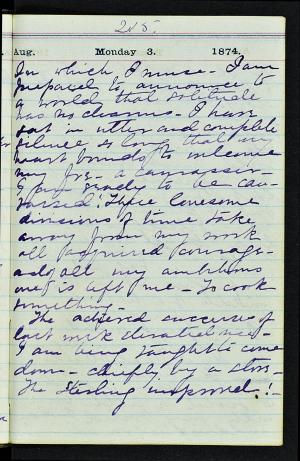 215.
Aug. Monday 3. 1874.
In which I muse - I am
prepared to announce to
a world that solitude
has no charms - I have
sat in utter and complete
silence so long that my
heart bounds to welcome
my
I am ready to be can-
vassed! These lonesome
divisions of time take
away from my work
all acquired courage -
and of all my ambitions
one is left me - To cook
something -
The achieved success of
last week elevated me -
I am being taught to come
down - chiefly by a stove -
The Sterling improved! -